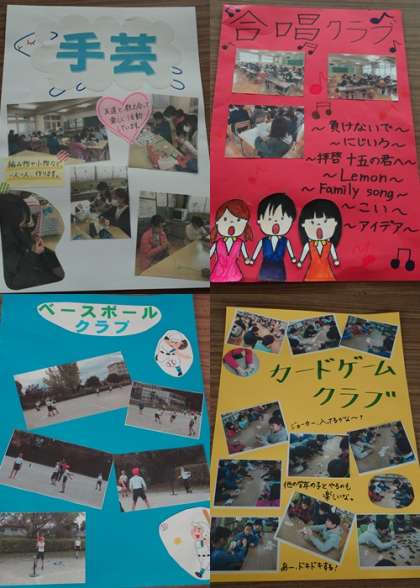 手芸
友達と教え合って
楽しく活動
しています。
編み物や小物など
一人一人、作ります。
合唱クラブ
～負けないで～
～にじいろ～
～拝啓 十五の君へ～
～Lemon～
～Family song～
～こい～
～アイデア～
ベースボール
クラブ
カードゲーム
クラブ
ジョーカー、入ってるかな～？
他の学年の子とやるのも
楽しいな。
あー、ドキドキする！